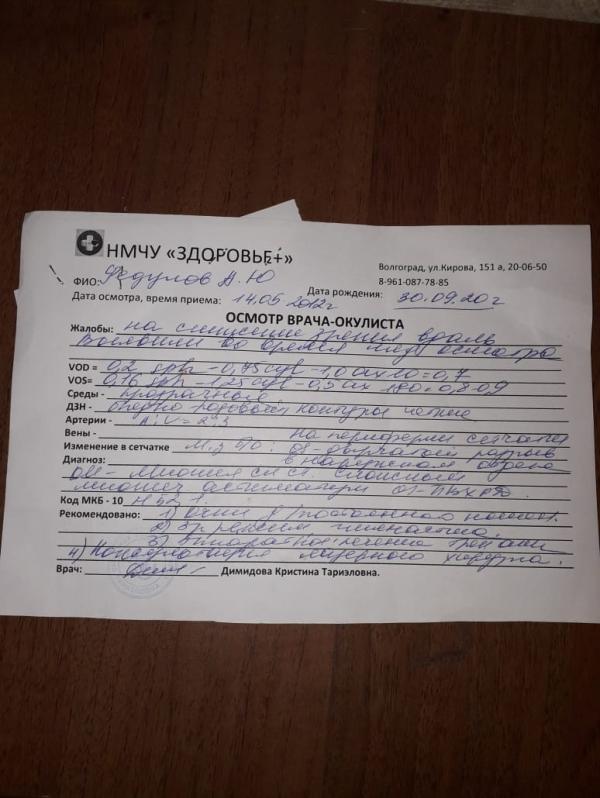 НМЧУ «ЗДОРОВЬЕ+»
Волгоград, ул.Кирова, 151 а, 20-06-50
8-961-087-78-85
ФИО: Федулов А.Ю
Дата осмотра, время приема: 14.06 2012г Дата рождения: 30.09.20 г
ОСМОТР ВРАЧА-ОКУЛИСТА
Жалобы: на снижение зрения вдаль
во время осмотра
VOD = 0,2 sph - 0,75 cyl - 1,0 ax 10 = 0,7
VOS= 0,16 sph - 1,25 cyl - 0,5 ax 180 = 0,8-0,9
Среды - прозрачные
ДЗН - бледно-розовый контуры четкие
Артерии - A:V = 2:3
Вены - на периферии сетчатки
Изменение в сетчатке
Диагноз: в наружном отделе
OU - Миопия сл ст. Сложный
миопич астигматизм OS- ПВХРД.
Код МКБ - 10 H 52. 1.
Рекомендовано: 1) очки д/постоянного ношен.
2)
3) Аппаратное лечение
4) Консультация лазерного хирурга.
Врач: Димидова Кристина Тариэловна.